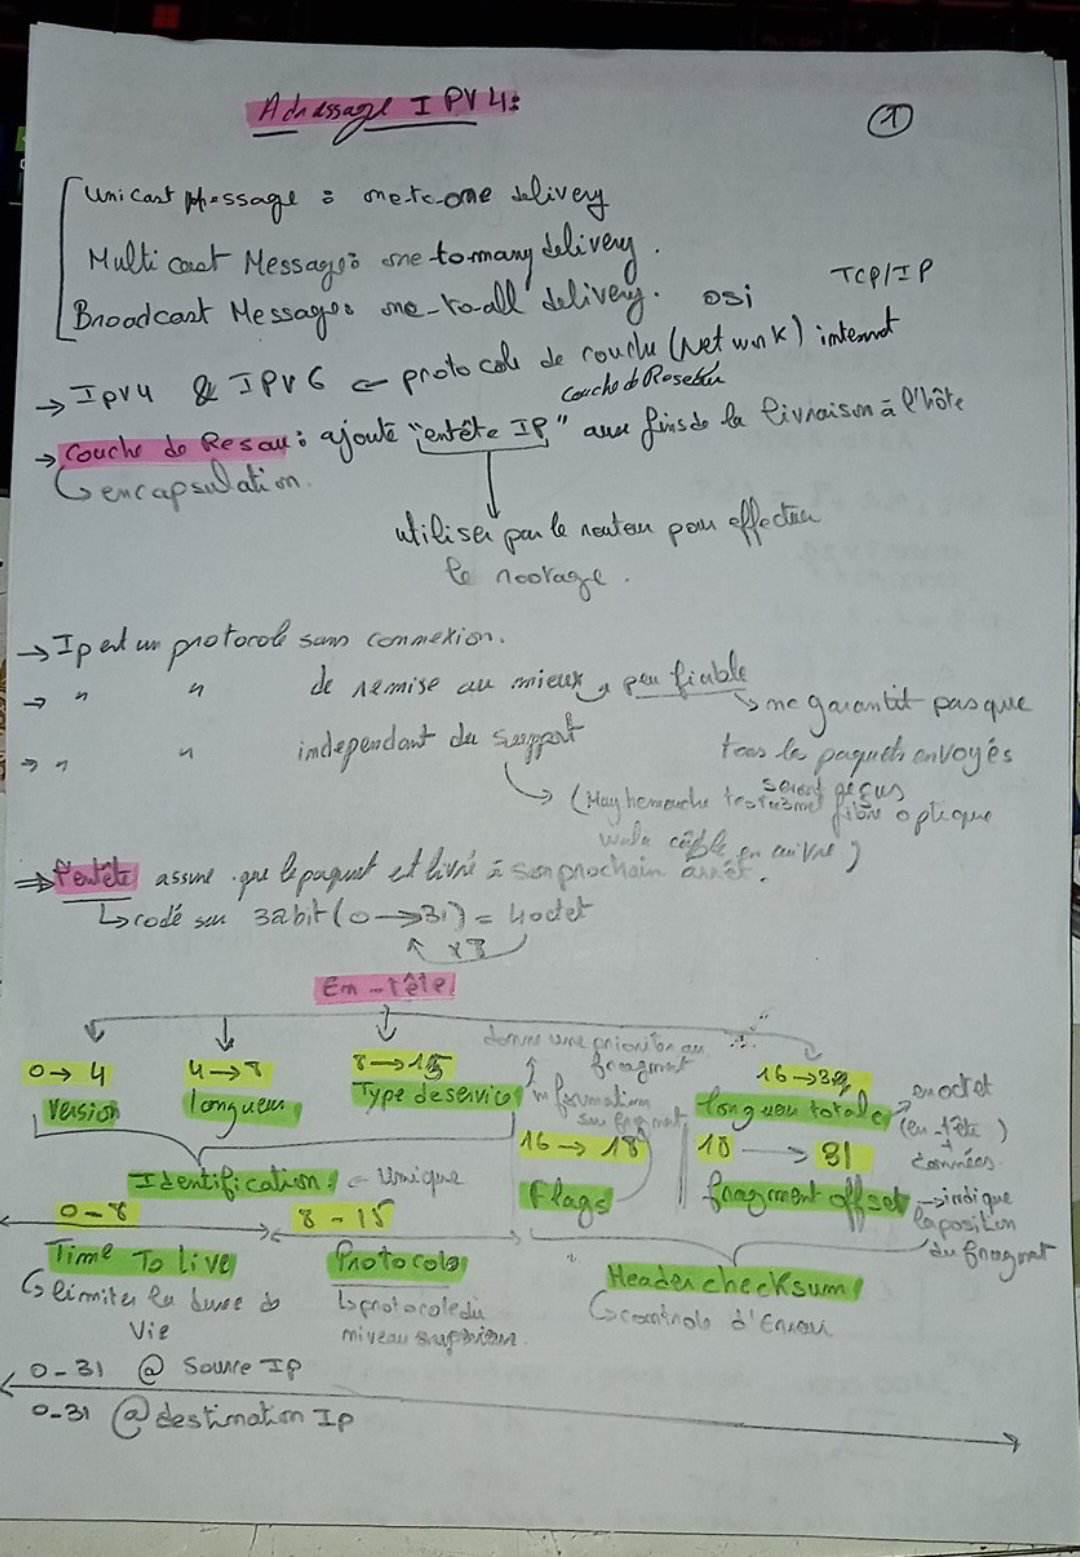 Adressage IPV4:
1
Unicast Message : one-to-one delivery
Multi cast Message: one-to many delivery.
Broadcast Message: one-to-all delivery.
osi
TCP/IP
→ Ipv4 & IPV6 ← protocole de couche (Network) internet
Couche de Reseau
→ Couche de Resau : ajoute "entête IP" aux fins de la livraison à l'hôte
↳ encapsulation.
utiliser par le routeur pour effectuer
le rootage.
→ Ip est un protocole sans connexion.
→ " " de remise au mieux, peu fiable
↳ ne garantit pas que
tous les paquets envoyés
seront reçus
→ " " independant du support
↳ (May hemouche fibre optique
wala câble en cuivre)
⇒ l'entête assure que le paquet est livré à son prochain arrêt.
↳ codé sur 32bit (0→31) = 4octet
x8
En-tête
0→4
Version
4→8
longueur
8→15
Type de service
donne une priorité au
fragment
information
sur fragment
16→32
longueur totale
en octet
(en-tête
+
données
)
Identification: ← Unique
16→18
Flags
18→31
fragment offset →indique
la position
du fragment
0-8
Time To live
↳ limiter la duree de
Vie
8-15
Protocole
↳ protocole du
niveau superieur.
Header checksum
↳ controle d'Erreur
0-31 @ Source IP
0-31 @ destination Ip